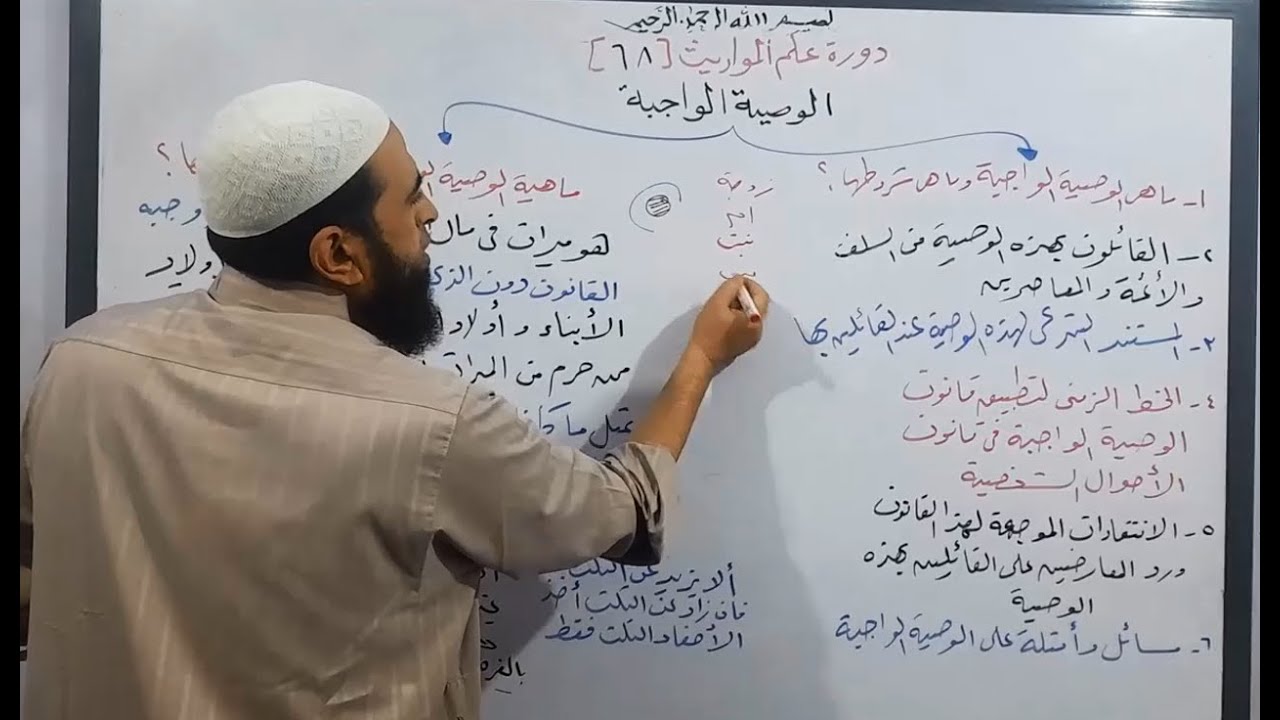 بسم الله الرحمن الرحيم
دورة علم المواريث [٦٨]
الوصية الواجبة
١- ماهى الوصية الواجبة وماهى شروطها؟
٢- القائلون بهذه الوصية من السلف
والأئمة والمعاصرين
٣- المستند الشرعى لهذه الوصية عند القائلين بها
٤- الخط الزمنى لتطبيق قانون
الوصية الواجبة فى قانون
الأحوال الشخصية
٥- الانتقادات الموجهة لهذا القانون
ورد المعارضين على القائلين بهذه
الوصية
٦- مسائل وأمثلة على الوصية الواجبة
زوجة
ام
بنت
ماهية الوصية
هو ميراث فى مال
القانون دون الذى
الأبناء وأولاد
ممن حرم من
بمثل ما
ألا يزيد عن الثلث
فان زاد عن الثلث أخذ
الأحفاد الثلث فقط